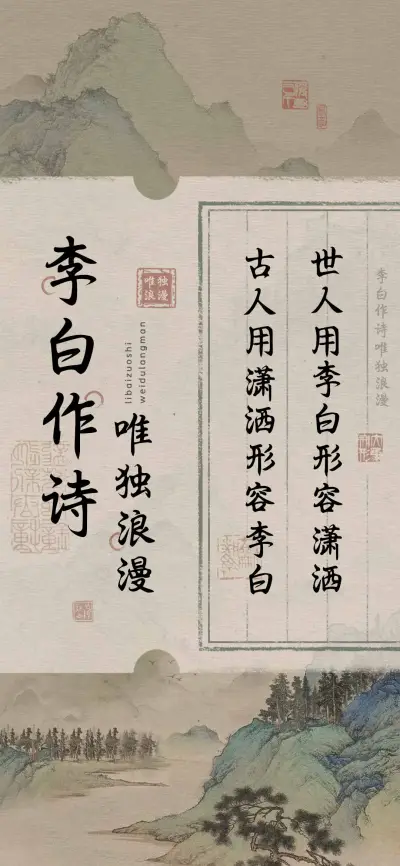 李白作诗
唯独浪漫
唯独
浪漫
libaizuoshi
weidulangman
古人用潇洒形容李白
世人用李白形容潇洒
李白作诗唯独浪漫